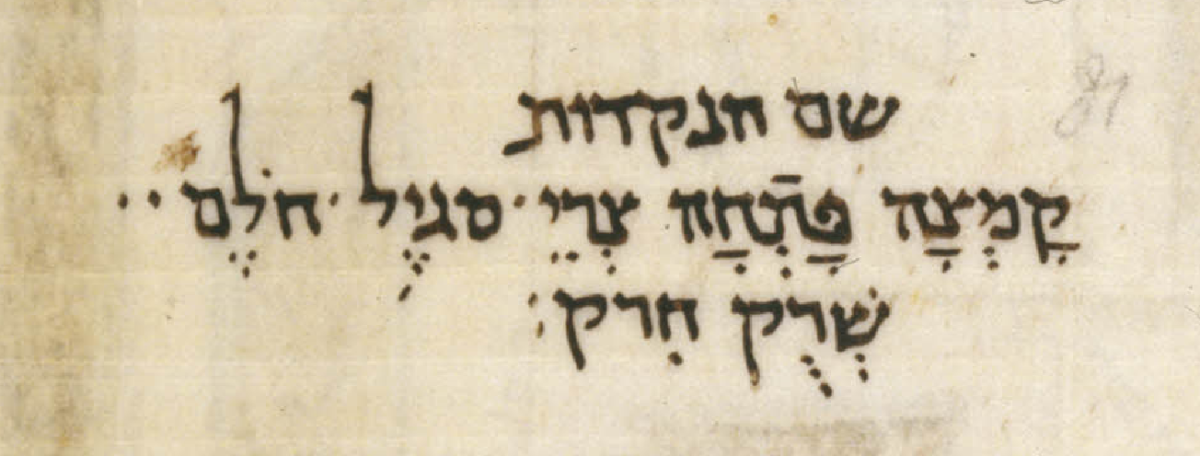 שם הנקדות
קָמְצָה פָּתְחָה צְרֵיֵ · סגֶיל · חֹלֶם · ·
שְׁרֻק חִרק :